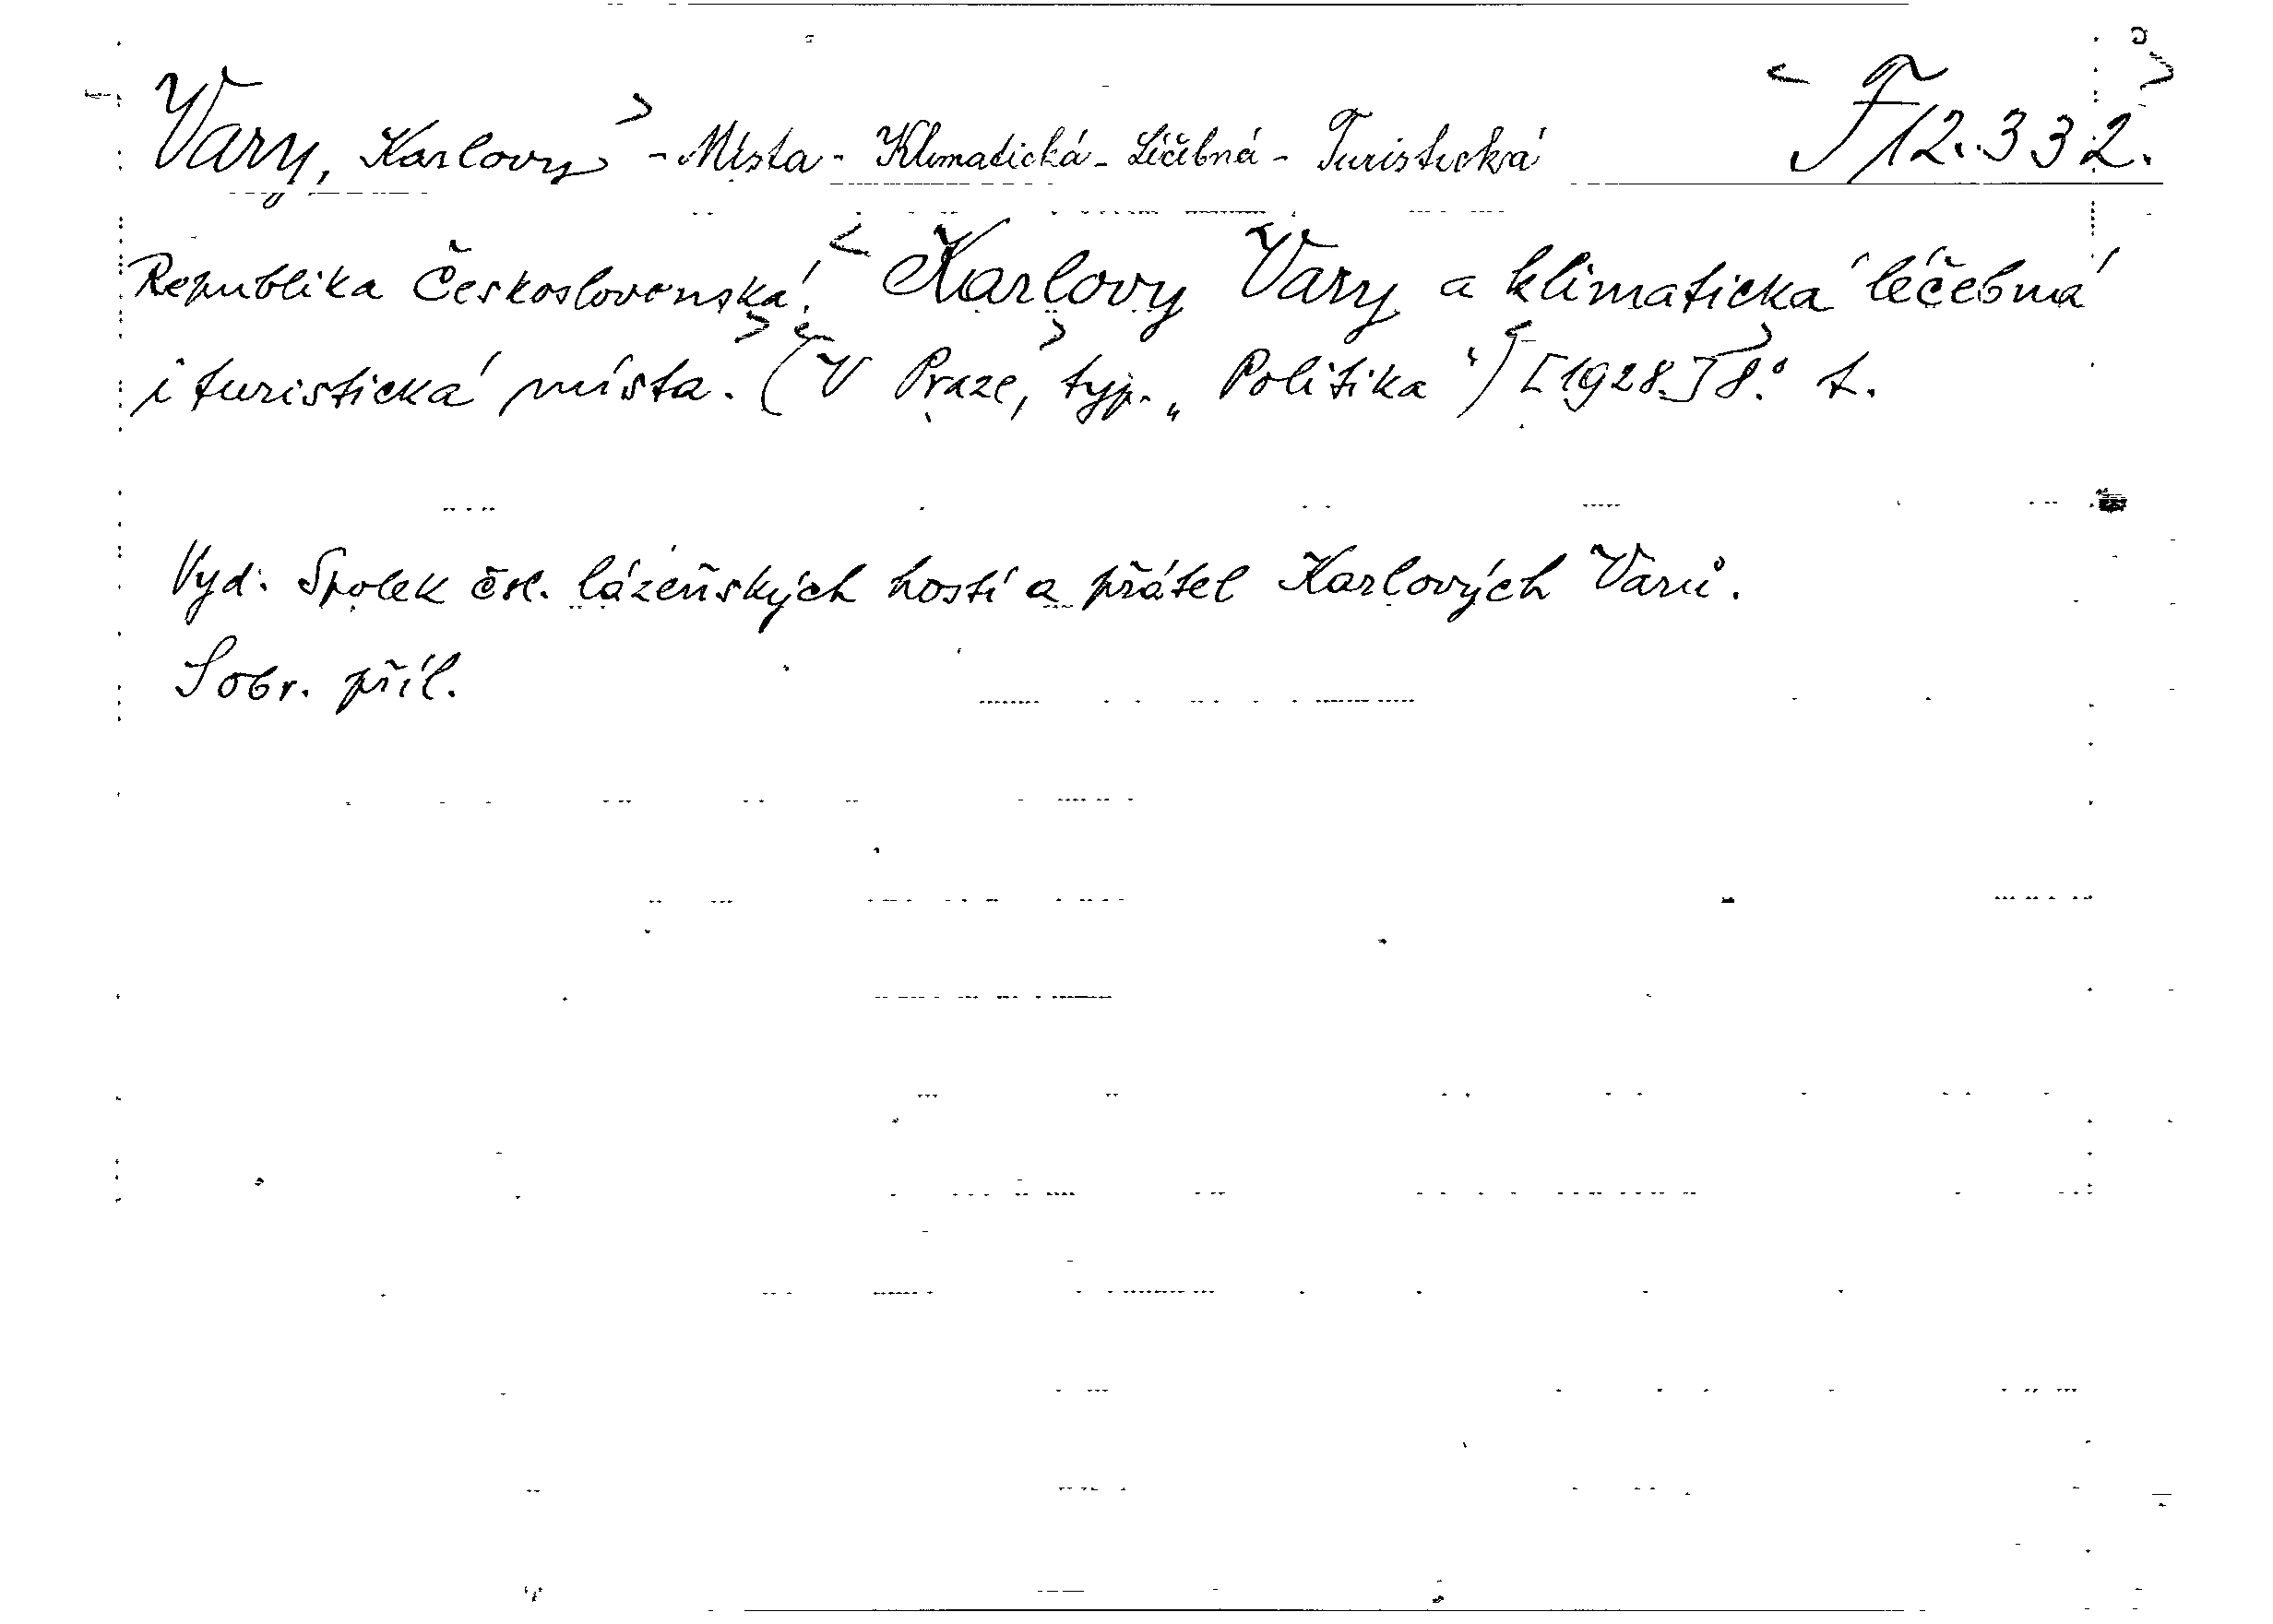 Vary, Karlovy - Místa - Klimatická - Léčebná - Turistická F 12.332.
Republika Československá. Karlovy Vary a klimatická léčebná
i turistická místa. (V Praze, typ. „Politika“) [1928.] 8.° t.
Vyd: Spolek čsl. lázeňských hostí a přátel Karlových Varů.
S obr. příl.